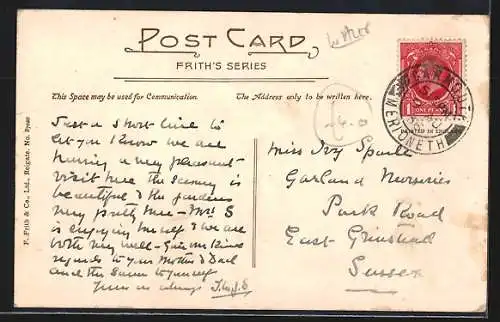 POST CARD
FRITH'S SERIES
This Space may be used for Communication.
The Address only to be written here.
F. Frith & Co., Ltd., Reigate. No.
ONE PENNY
MERIONETH
Just a short line to
let you know we are
having a very pleasant
visit here the scenery is
beautiful & the gardens
very pretty here - Mrs S
is enjoying herself & we are
both very well - Give our kind
regards to your Mother & Dad
and the same to yourself
Yours as always
Miss Ivy
Garland Nurseries
Park Road
East Grinstead
Sussex